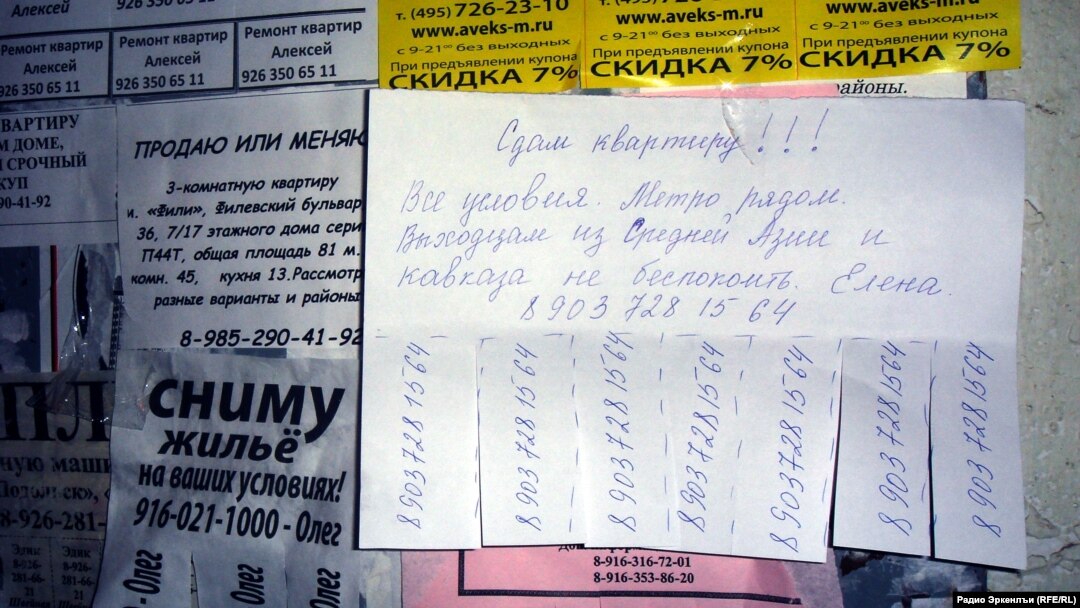 Алексей
926 350 65 11
Ремонт квартир
Алексей
926 350 65 11
Ремонт квартир
Алексей
926 350 65 11
Ремонт квартир
Алексей
926 350 65 11
т. (495) 726-23-10
www.aveks-m.ru
с 9-21⁰⁰ без выходных
При предъявлении купона
СКИДКА 7%
www.aveks-m.ru
с 9-21⁰⁰ без выходных
При предъявлении купона
СКИДКА 7%
www.aveks-m.ru
с 9-21⁰⁰ без выходных
При предъявлении купона
СКИДКА 7%
айоны.
ВАРТИРУ
М ДОМЕ,
СРОЧНЫЙ
КУП
90-41-92
ПРОДАЮ ИЛИ МЕНЯЮ
3-комнатную квартиру
м. «Фили», Филевский бульвар
36, 7/17 этажного дома сери
П44Т, общая площадь 81 м.
комн. 45, кухня 13.Рассмотр
разные варианты и районы
8-985-290-41-92
Сдам квартиру!!!
Все условия. Метро рядом.
Выходцам из Средней Азии и
Кавказа не беспокоить. Елена.
8 903 728 15 64
8 903 728 15 64
8 903 728 15 64
8 903 728 15 64
8 903 728 15 64
8 903 728 15 64
8 903 728 15 64
8 903 728 15 64
сниму
жильё
на ваших условиях!
916-021-1000 - Олег
- Олег
Олег
Олег
ную маши
Подольск»,
8-926-281-
Эдик
8-926-
281-66-
21
Эдик
8-926-
281-66-
21
8-916-316-72-01
8-916-353-86-20
Радио Эркенлъи (RFE/RL)